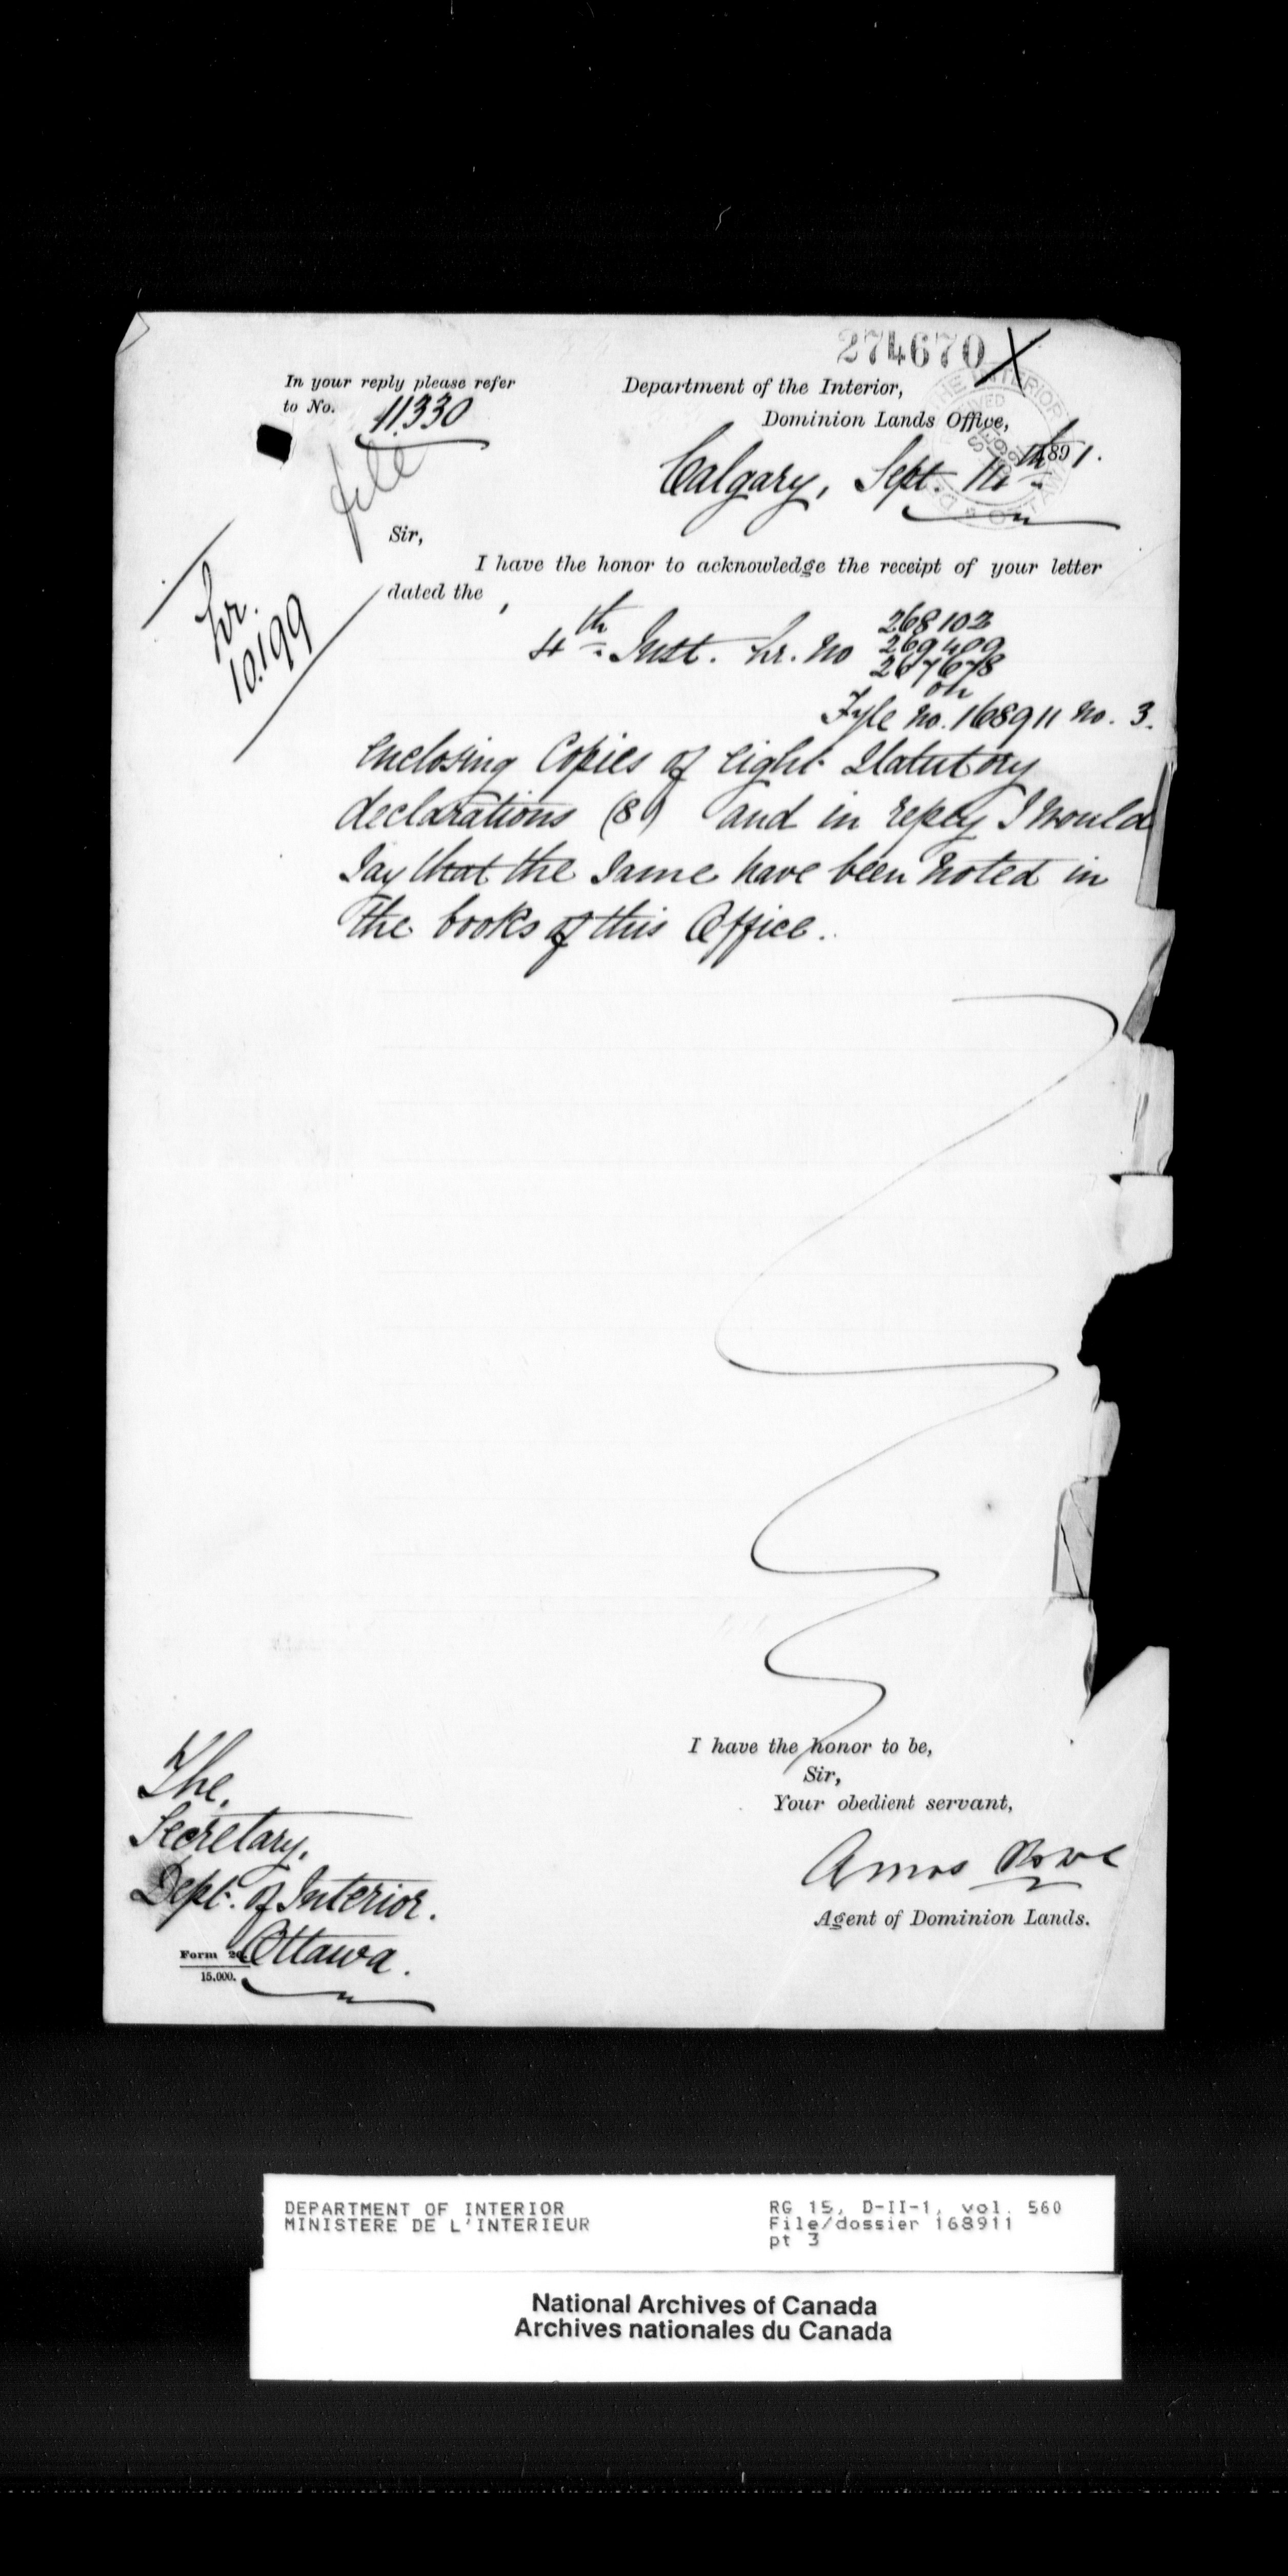 274670
In your reply please refer
to No. 11.330
Department of the Interior,
Dominion Lands Office,
Calgary, Sept. 14th 1891.
file
Sir,
I have the honor to acknowledge the receipt of your letter
dated the
hr.
10.199
4th Inst. hr. no 268102
269409
267678
on
Fyle no. 168911 no. 3.
enclosing Copies of eight Statutory
declarations (8) and in reply I would
say that the same have been noted in
the books of this Office.
I have the honor to be,
Sir,
Your obedient servant,
Amos Rowe
Agent of Dominion Lands.
The,
Secretary,
Dept. of Interior.
Ottawa.
Form 20.
15,000.
DEPARTMENT OF INTERIOR
MINISTERE DE L'INTERIEUR
RG 15, D-II-1, vol. 560
File/dossier 168911
pt 3
National Archives of Canada
Archives nationales du Canada